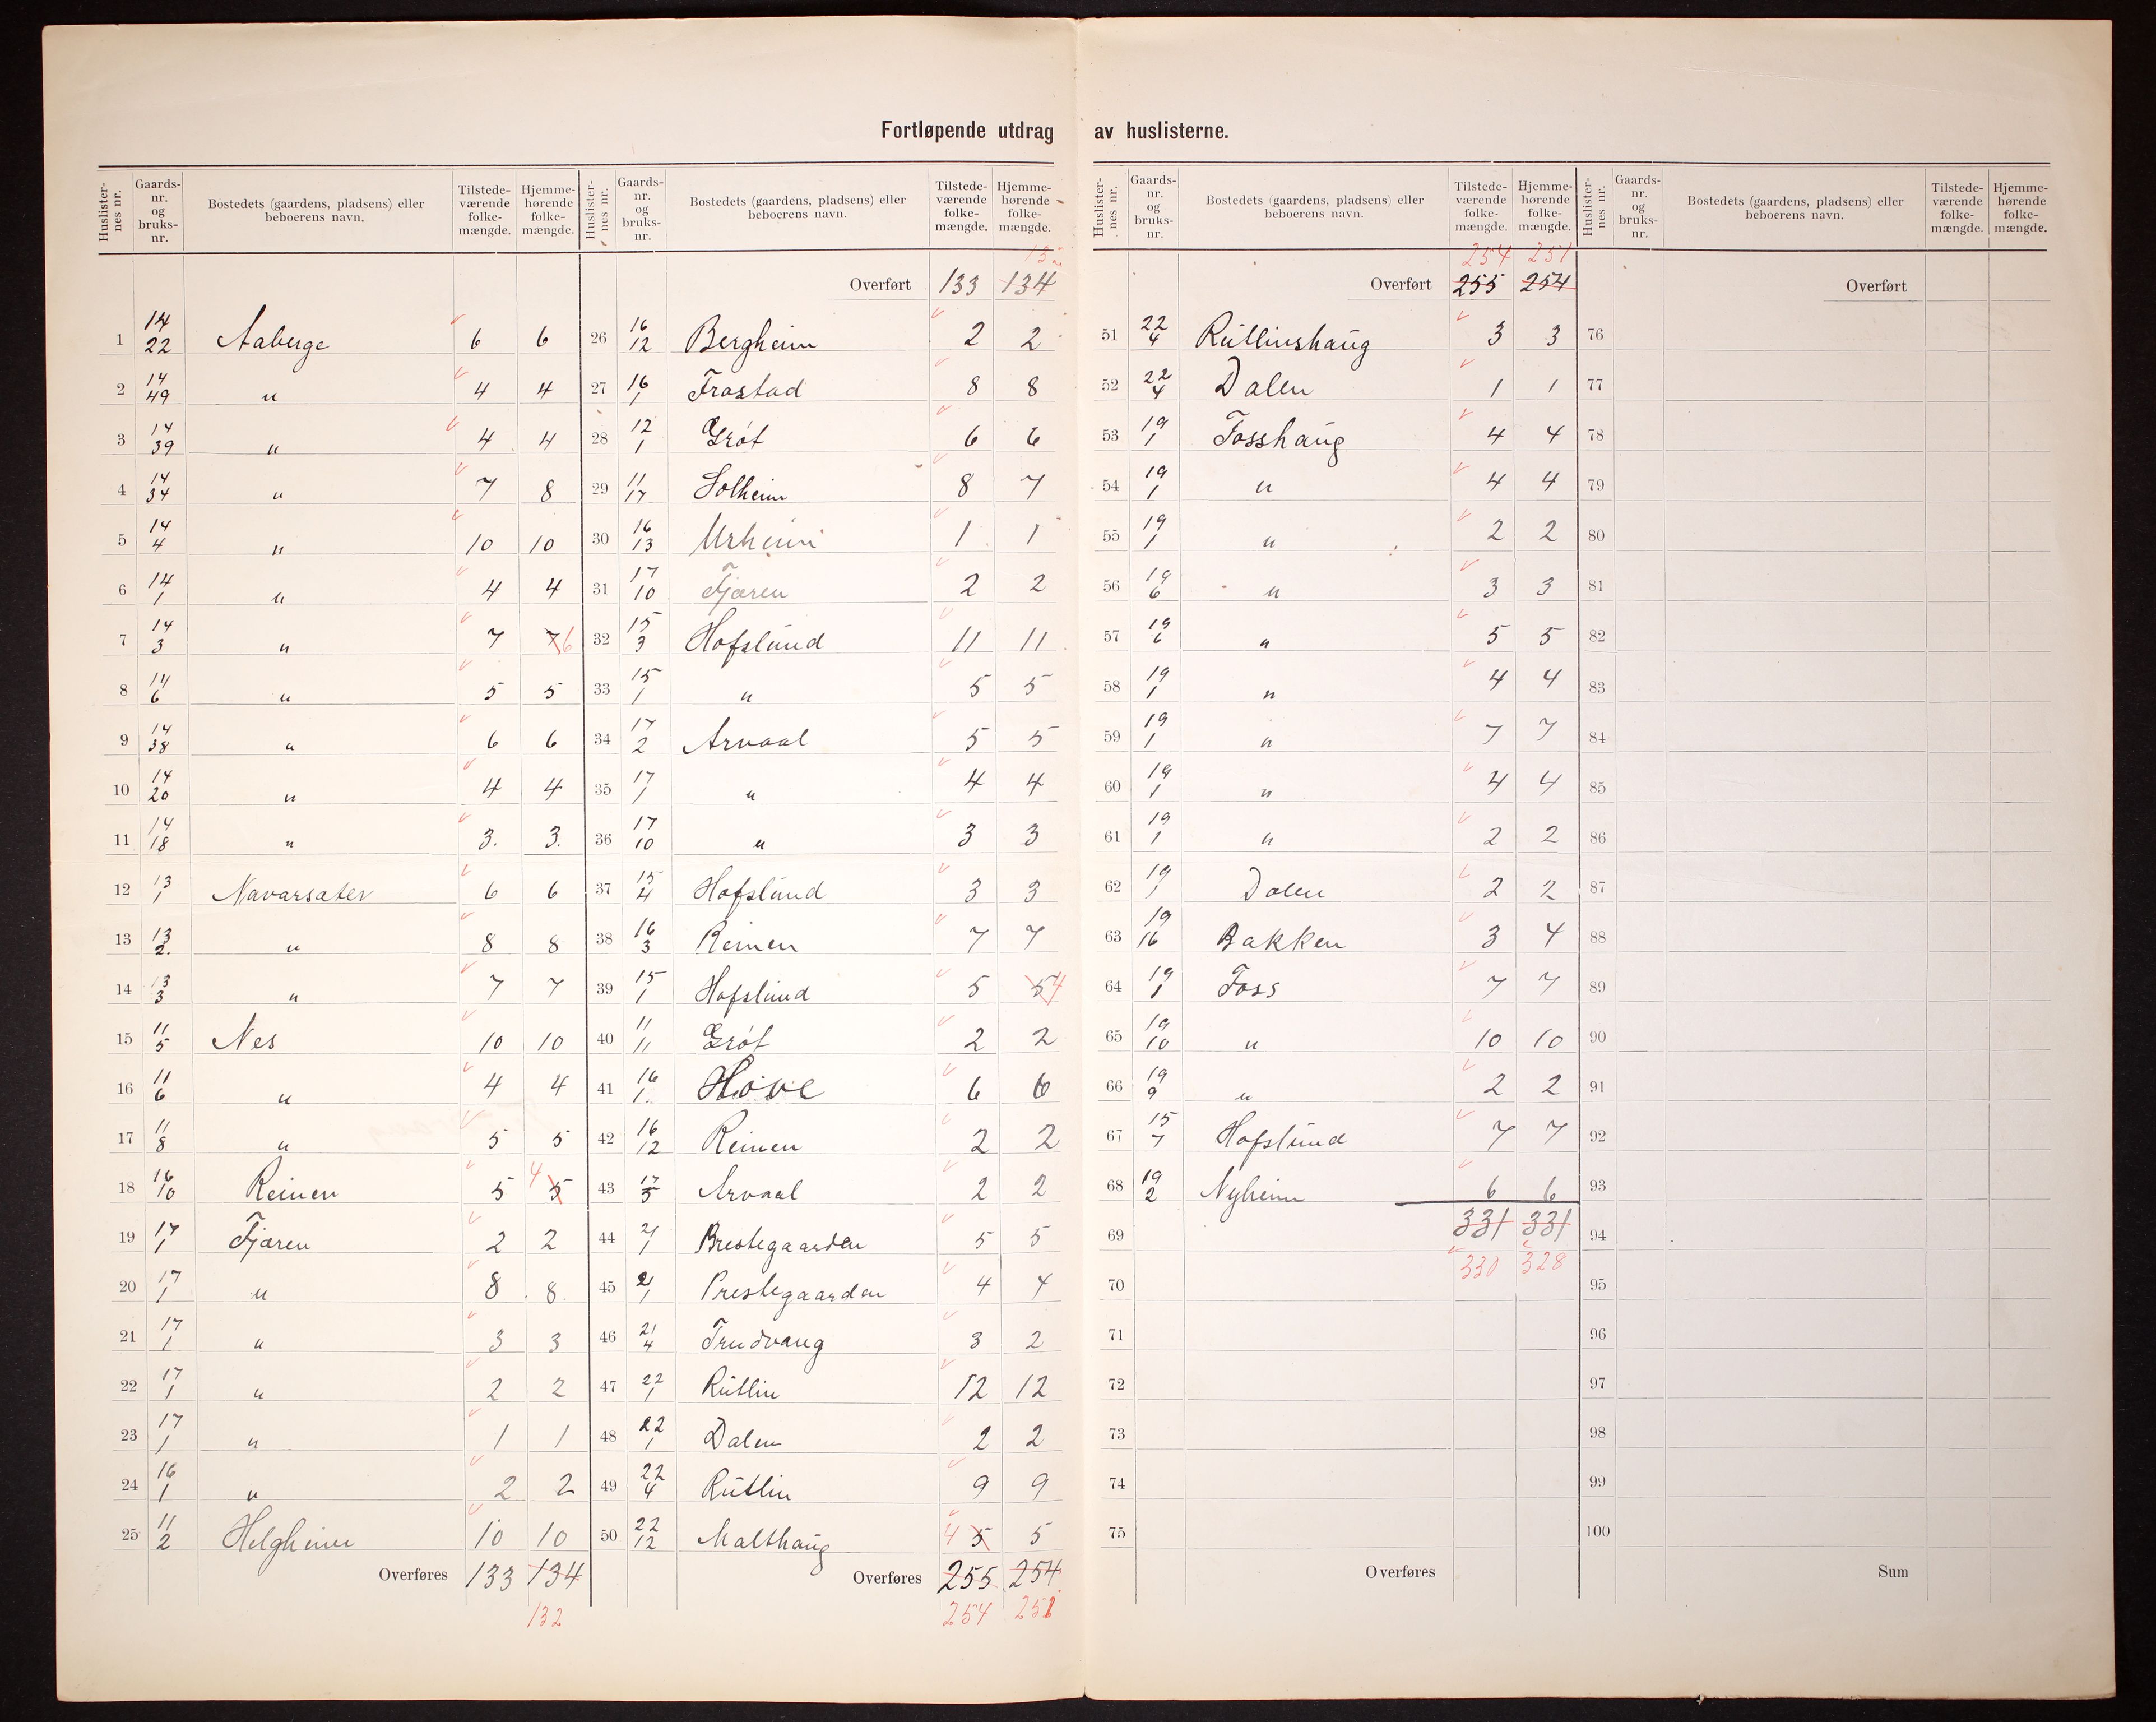 Fortløpende utdrag av huslisterne.
Huslisternes nr. Gaardsnr. og bruksnr. Bostedets (gaardens, pladsens) eller beboerens navn. Tilstedeværende folkemængde. Hjemmehørende folkemængde.
1 14/22 Aaberge 6 6
2 14/49 " 4 4
3 14/39 " 4 4
4 14/34 " 7 8
5 14/4 " 10 10
6 14/1 " 4 4
7 14/3 " 7 7 6
8 14/6 " 5 5
9 14/38 " 6 6
10 14/20 " 4 4
11 14/18 " 3. 3.
12 13/1 Navarsater 6 6
13 13/2. " 8 8
14 13/3 " 7 7
15 11/5 Nes 10 10
16 11/6 " 4 4
17 11/8 " 5 5
18 16/10 Reinen 5 4 5
19 17/1 Fjæren 2 2
20 17/1 " 8 8
21 17/1 " 3 3
22 17/1 " 2 2
23 17/1 " 1 1
24 16/1 " 2 2
25 11/2 Helgheim 10 10
Overføres 133 134
132
Huslisternes nr. Gaardsnr. og bruksnr. Bostedets (gaardens, pladsens) eller beboerens navn. Tilstedeværende folkemængde. Hjemmehørende folkemængde.
132
Overført 133 134
26 16/12 Bergheim 2 2
27 16/1 Frastad 8 8
28 12/1 Grót 6 6
29 11/17 Solheim 8 7
30 16/13 Urheim 1 1
31 17/10 Fjæren 2 2
32 15/3 Hofslund 11 11
33 15/1 " 5 5
34 17/2 Arvaal 5 5
35 17/1 " 4 4
36 17/10 " 3 3
37 15/4 Hofslund 3 3
38 16/3 Reinen 7 7
39 15/1 Hofslund 5 5 4
40 11/11 Grót 2 2
41 16/1. Hove 6 6
42 16/12 Reinen 2 2
43 17/5 Arvaal 2 2
44 21/1 Prestegaarden 5 5
45 21/1 Prestegaarden 4 4
46 21/4 Trudvang 3 2
47 22/1 Rutlin 12 12
48 22/1 Dalen 2 2
49 22/4 Rutlin 9 9
50 22/12 Malthaug 4 5 5
Overføres 255 254
254 251
Huslisternes nr. Gaardsnr. og bruksnr. Bostedets (gaardens, pladsens) eller beboerens navn. Tilstedeværende folkemængde. Hjemmehørende folkemængde.
254 251
Overført 255 254
51 22/4 Rutlinshaug 3 3
52 22/4 Dalen 1 1
53 19/1 Fosshaug 4 4
54 19/1 " 4 4
55 19/1 " 2 2
56 19/6 " 3 3
57 19/6 " 5 5
58 19/1 " 4 4
59 19/1 " 7 7
60 19/1 " 4 4
61 19/1 " 2 2
62 19/1 Dalen 2 2
63 19/16 Bakken 3 4
64 19/1 Foss 7 7
65 19/10 " 10 10
66 19/9 " 2 2
67 15/7 Hofslund 7 7
68 19/2 Nyheim 6 6
69 331 331
330 328
70
71
72
73
74
75
Overføres
Huslisternes nr. Gaardsnr. og bruksnr. Bostedets (gaardens, pladsens) eller beboerens navn. Tilstedeværende folkemængde. Hjemmehørende folkemængde.
Overført
76
77
78
79
80
81
82
83
84
85
86
87
88
89
90
91
92
93
94
95
96
97
98
99
100
Sum